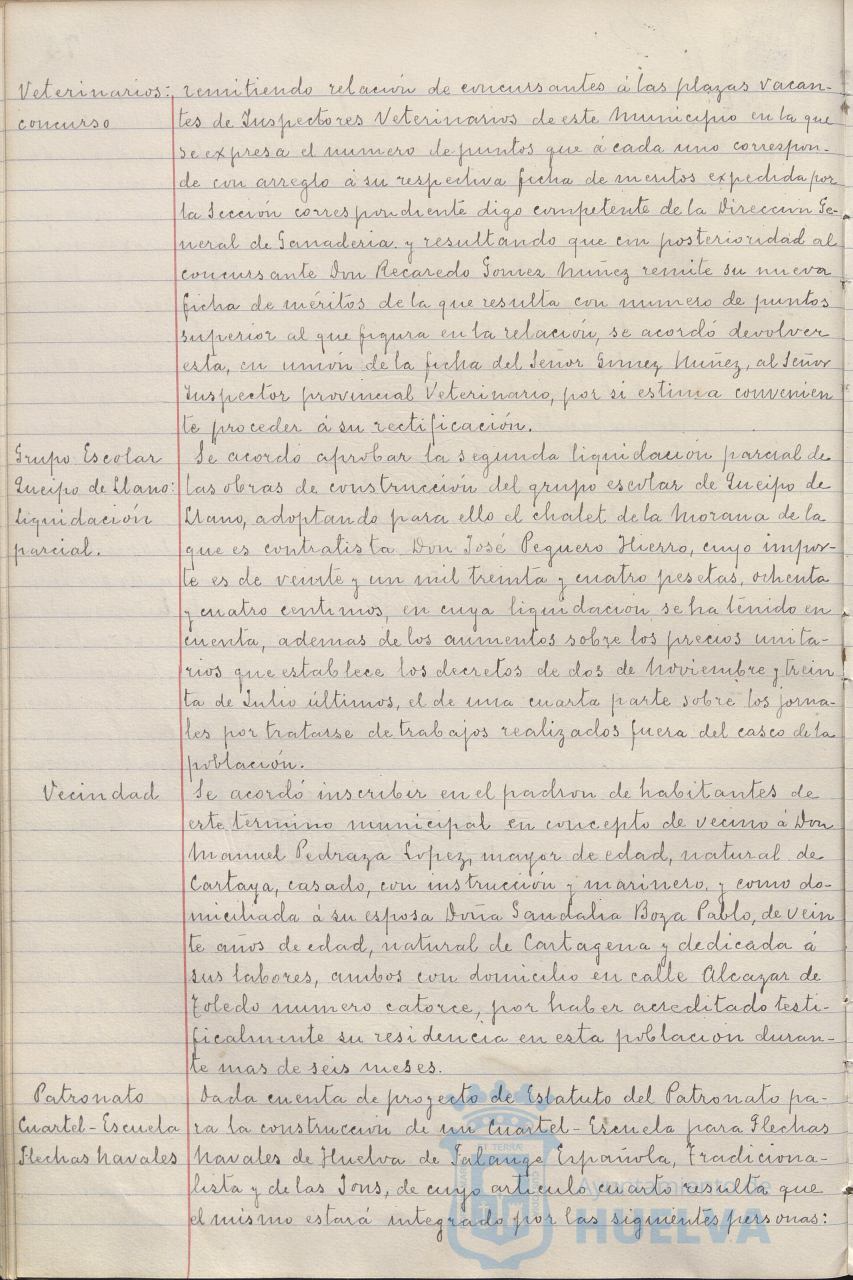 Veterinarios: remitiendo relación de concursantes á las plazas vacan-
concurso tes de Inspectores Veterinarios de este Municipio en la que
se expresa el numero de puntos que á cada uno correspon-
de con arreglo á su respectiva ficha de meritos expedida por
la Sección correspondiente digo competente de la Direccion Ge-
neral de Ganaderia. y resultando que con posterioridad al
concursante Don Recaredo Gomez Nuñez remite su nueva
ficha de méritos de la que resulta con numero de puntos
superior al que figura en la relación, se acordó devolver
esta, en unión de la ficha del Señor Gomez Nuñez, al Señor
Inspector provincial Veterinario, por si estima convenien
te proceder á su rectificación.
Grupo Escolar Se acordó aprobar la segunda liquidación parcial de
Queipo de Llano: las obras de construcción del grupo escolar de Queipo de
Liquidación Llano, adoptando para ello el chalet de la Morana de la
parcial. que es contratista Don José Peguero Hierro, cuyo impor-
te es de veinte y un mil treinta y cuatro pesetas, ochenta
y cuatro centimos, en cuya liquidación se ha tenido en
cuenta, ademas de los aumentos sobre los precios unita-
rios que establece los decretos de dos de Noviembre y trein
ta de Julio últimos, el de una cuarta parte sobre los jorna-
les por tratarse de trabajos realizados fuera del casco de la
población.
Vecindad Se acordó inscribir en el padron de habitantes de
este termino municipal en concepto de vecino á Don
Manuel Pedraza Lopez, mayor de edad, natural de
Cartaya, casado, con instrucción y marinero, y como do-
miciliada á su esposa Doña Sandalia Boza Pablo, de vein
te años de edad, natural de Cartagena y dedicada á
sus labores, ambos con domicilio en calle Alcazar de
Toledo numero catorce, por haber acreditado testi-
ficalmente su residencia en esta población duran-
te mas de seis meses.
Patronato Dada cuenta de proyecto de Estatuto del Patronato pa-
Cuartel-Escuela ra la construccion de un Cuartel-Escuela para Flechas
Flechas Navales Navales de Huelva de Falange Española, Tradiciona-
lista y de las Jons, de cuyo articulo cuarto resulta que
el mismo estará integrado por las siguientes personas:
Ayuntamiento de
HUELVA